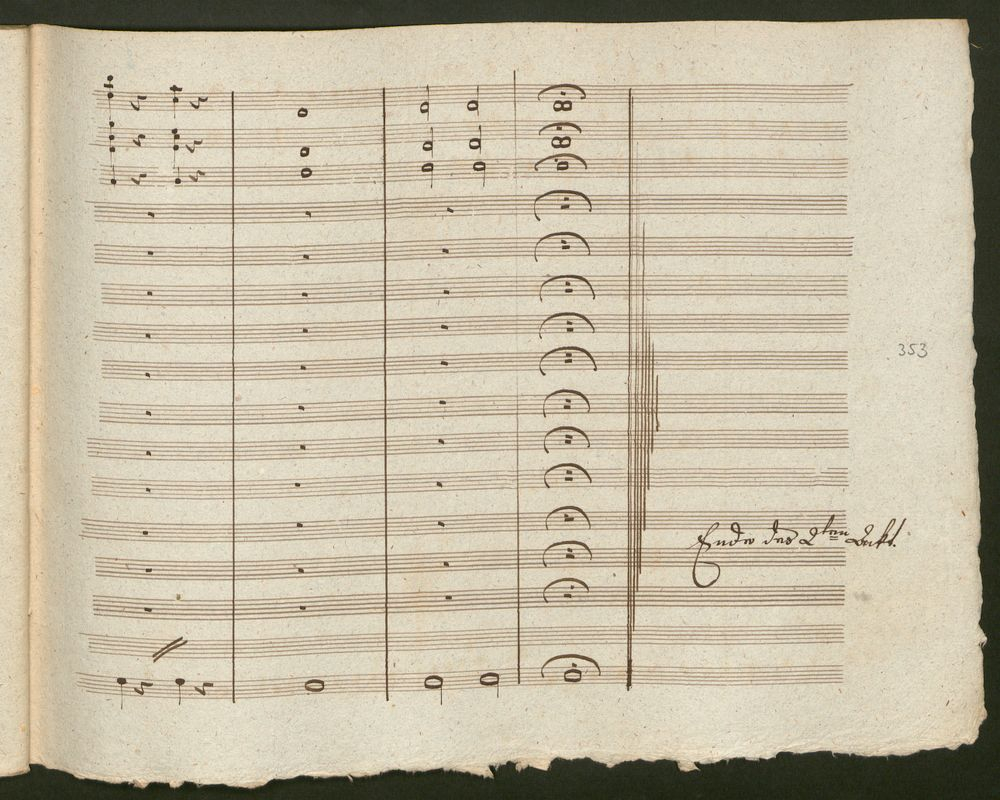 353
Ende des 2ten Ackt.